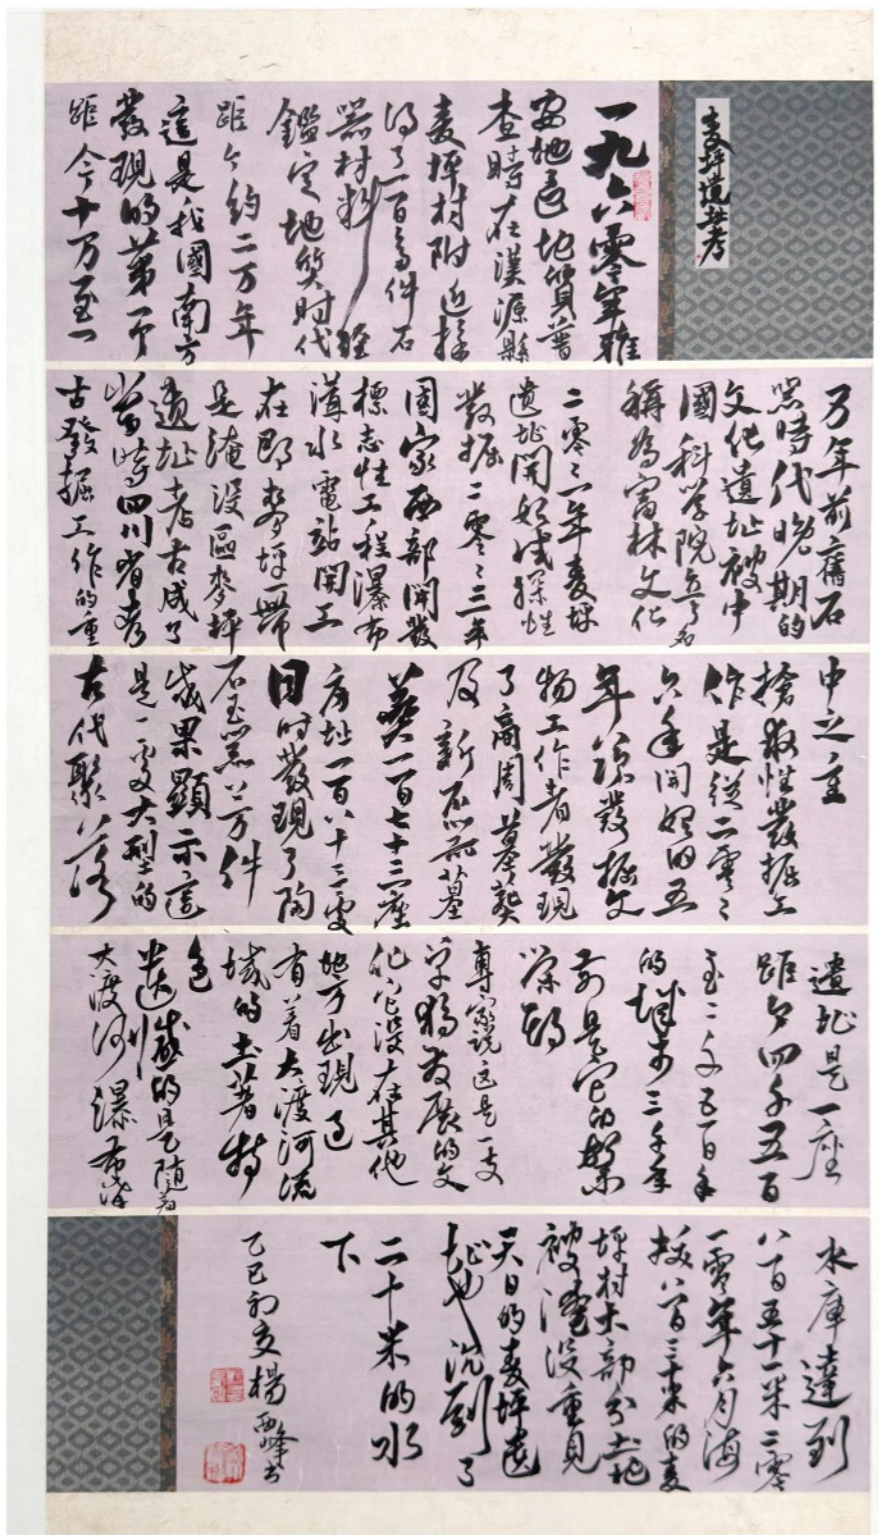 麦坪遗址考
一九六零年雅
安地区地質普
查時在漢源縣
麦坪村附近採
得了一百多件石
器材料经
鑑定地質时代
距今約二万年
這是我國南方
發現的第一个
距今十万至一
万年前舊石
器時代晚期的
文化遺址被中
國科学院命名
稱為富林文化
二零零一年麦坪
遺址開始試探性
發掘二零零三年
国家西部開發
標志性工程瀑布
溝水電站開工
在即麥坪一帶
是淹没區麥坪
遺址考古成了
當時四川省考
古發掘工作的重
中之重
搶救性發掘工
作是從二零零
六年開始的五
年次發掘文
物工作者發現
了商周墓葬
及新石器墓
葬一百七十三座
房址一百八十三處
同时發現了陶
石玉器上万件
成果顯示這
是一處大型的
古代聚落
遺址是一座
距今四千五百
至二千五百年
的城市三千年
前是它的繁
榮期
專家説这是一支
单獨发展的文
化它没在其他
地方出現過
有着大渡河流
域的土著特
色
遗憾的是隨着
大渡河瀑布溝
水庫達到
八百五十一米二零
一零年六月海
拔八百三十米的麦
坪村大部分土地
被淹没重見
天日的麦坪遗
址也沉到了
二十米的水
下
乙巳初夏楊西峰书